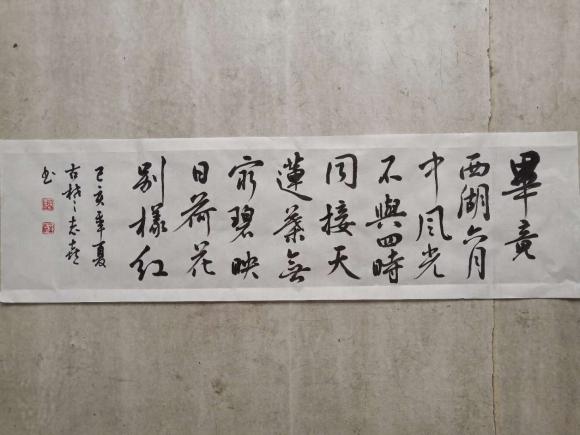 畢竟
西湖六月
中風光
不與四時
同接天
蓮葉無
窮碧映
日荷花
別樣紅
己亥年夏
書